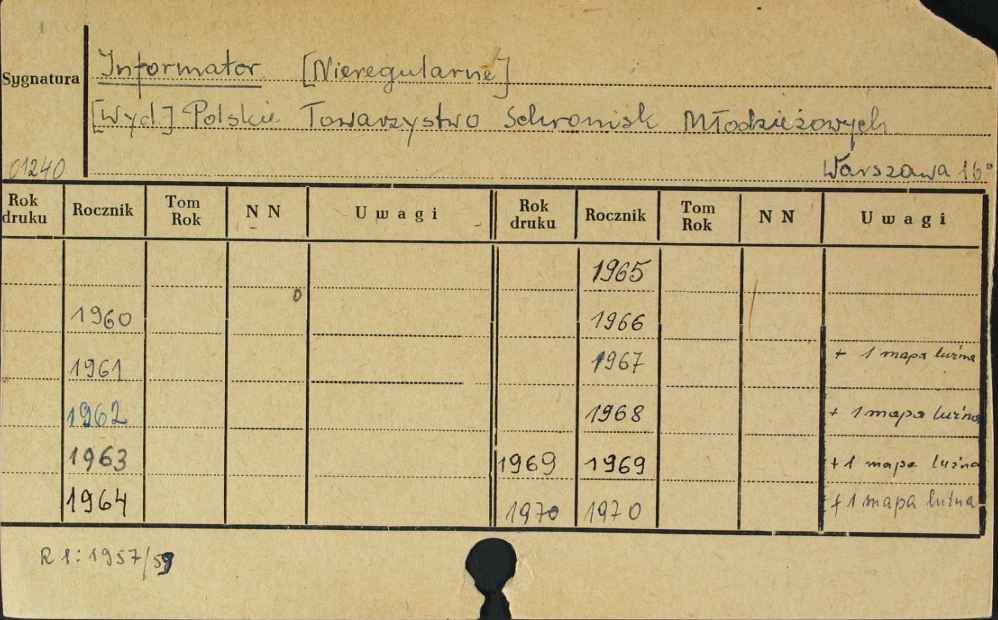 Informator [Nieregularne]
Sygnatura
[Wyd.] Polskie Towarzystwo Schronisk Młodzieżowych
01240 Warszawa 16°
Rok druku Rocznik Tom Rok N N Uwagi Rok druku Rocznik Tom Rok N N Uwagi
1965
1960 1966
1961 1967 + 1 mapa luźna
1962 1968 + 1 mapa luźna
1963 1969 1969 + 1 mapa luźna
1964 1970 1970 + 1 mapa luźna
R 1: 1957/59